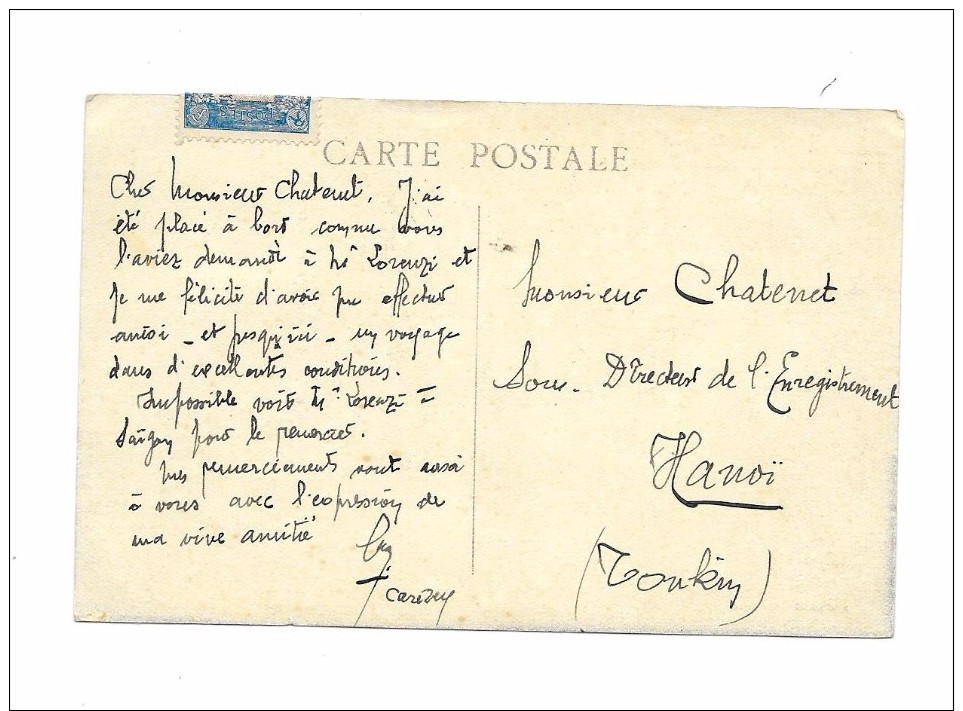 CARTE POSTALE
Cher Monsieur Chatenet, J'ai
été placé à bord comme vous
l'aviez demandé à Mr Lorenzi et
je me félicite d'avoir pu effectuer
ainsi - et jusqu'ici - un voyage
dans d'excellentes conditions.
Impossible voir Mr Lorenzi à
Saïgon pour le remercier.
Mes remerciements vont aussi
à vous avec l'expression de
ma vive amitié
Monsieur Chatenet
Sous-Directeur de l'Enregistrement
Hanoï
(Tonkin)